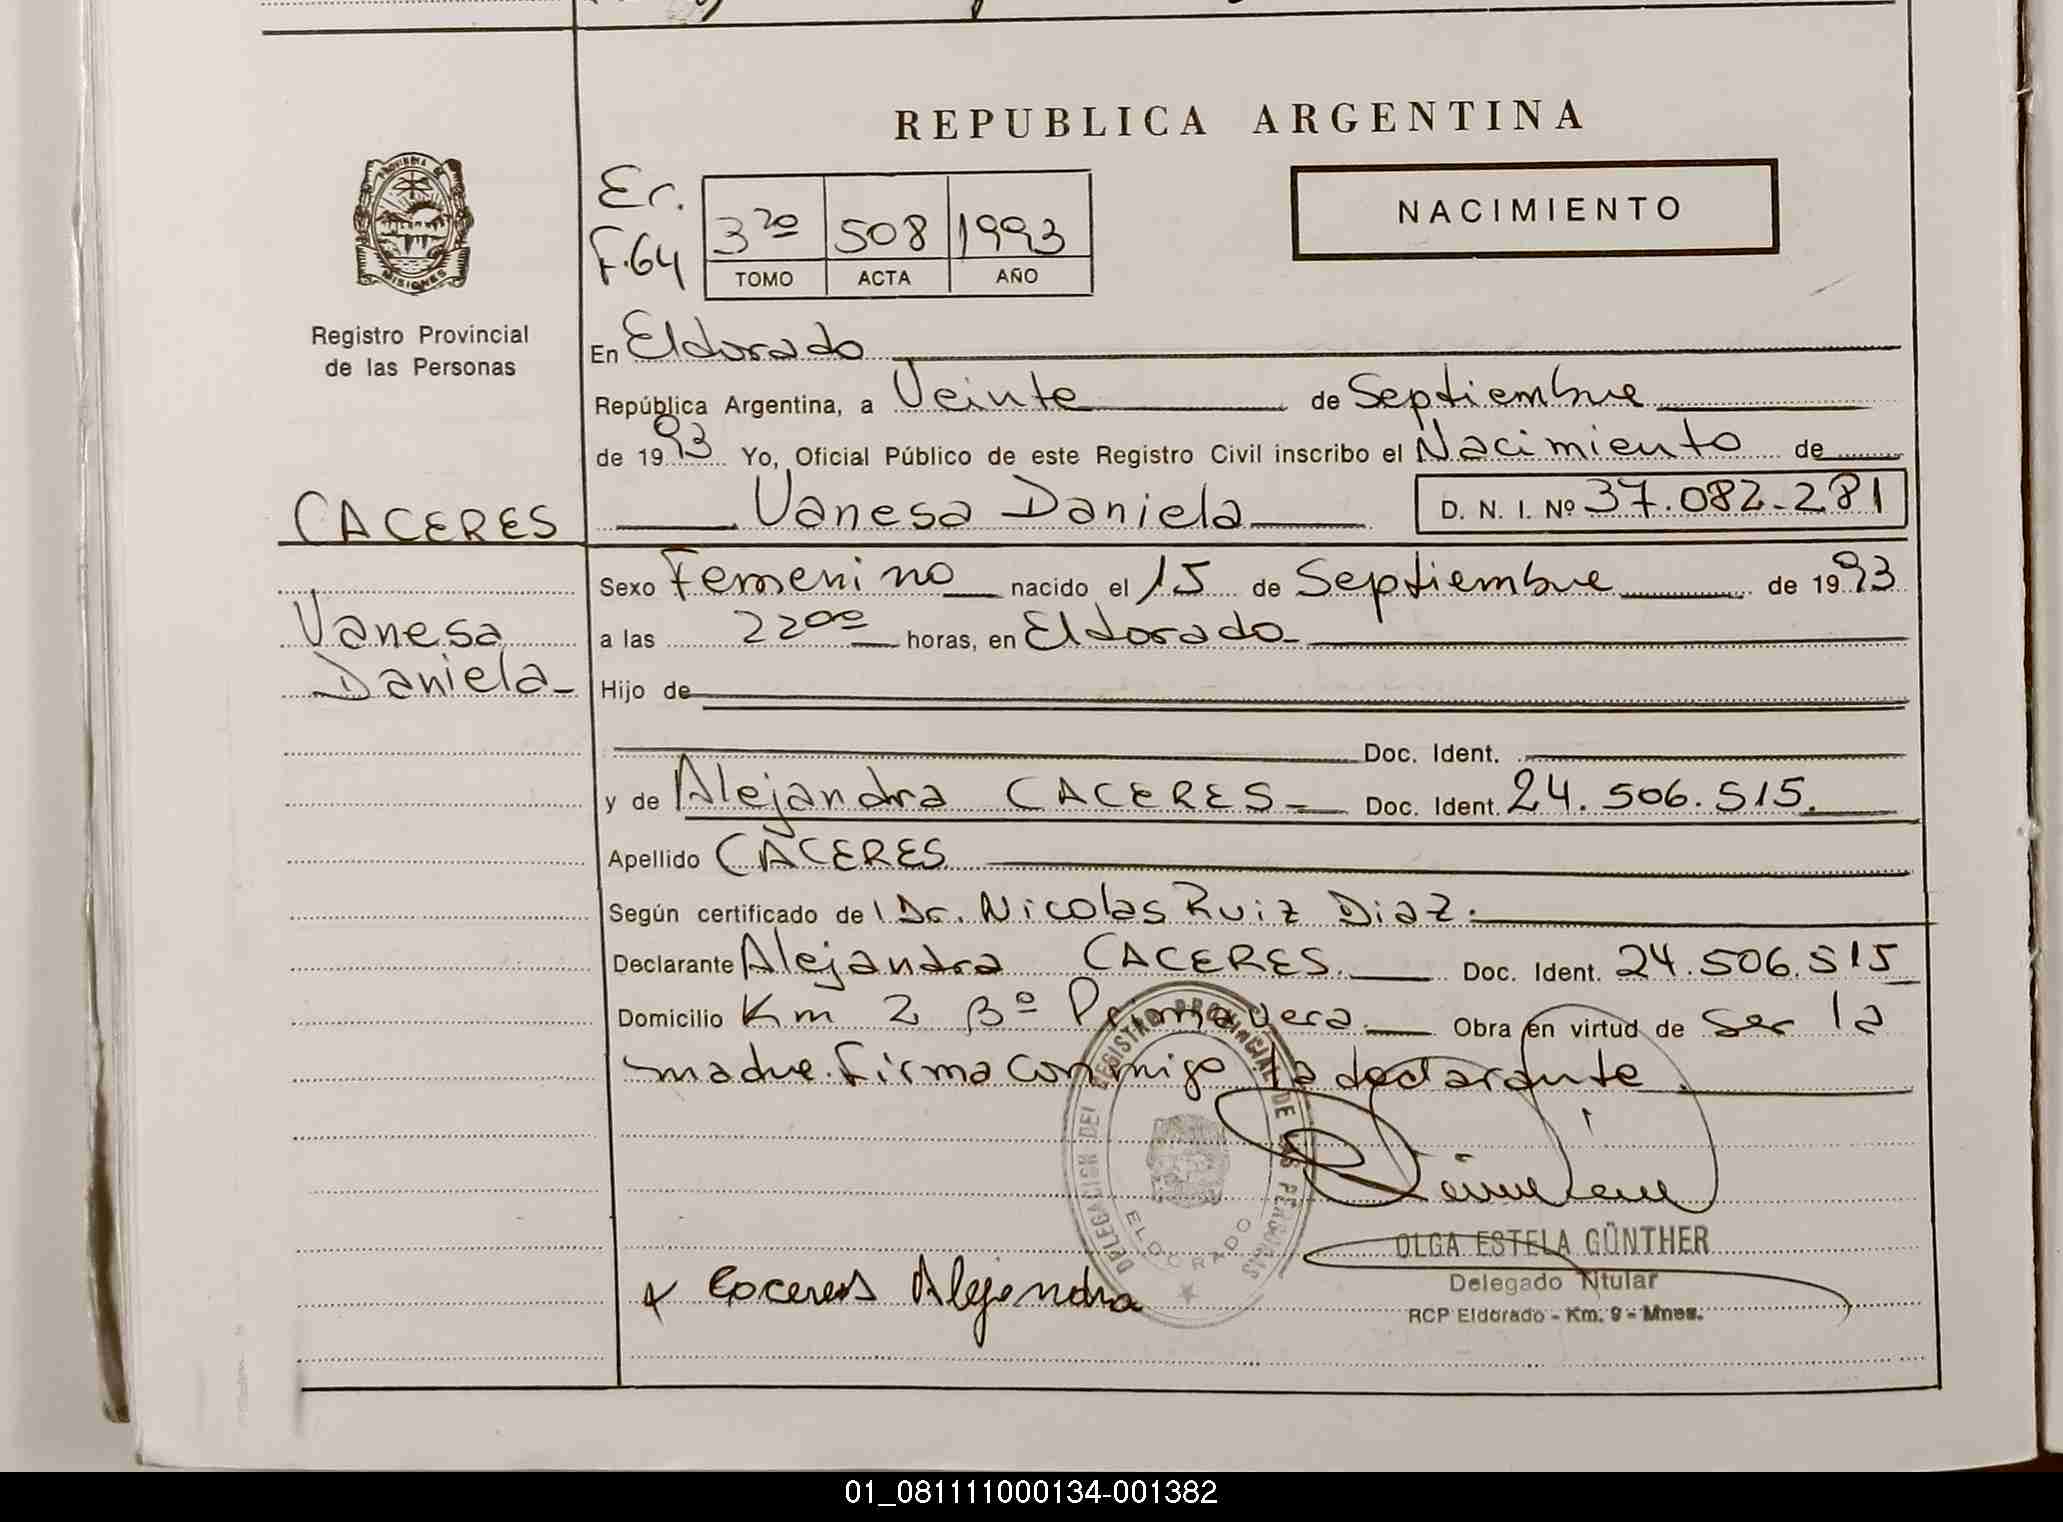 REPUBLICA ARGENTINA
PROVINCIA DE
MISIONES
Registro Provincial
de las Personas
Er.
F.64
3ro 508 1993
TOMO ACTA AÑO
NACIMIENTO
En Eldorado
República Argentina, a Veinte de Septiembre
de 1993 Yo, Oficial Público de este Registro Civil inscribo el Nacimiento de
CACERES
Vanesa Daniela D. N. I. Nº 37.082.281
Sexo Femenino nacido el 15 de Septiembre de 1993
Vanesa
Daniela
a las 22 00 horas, en Eldorado
Hijo de
Doc. Ident.
y de Alejandra CACERES Doc. Ident. 24.506.515.
Apellido CACERES
Según certificado de Dr. Nicolas Ruiz Diaz.
Declarante Alejandra CACERES Doc. Ident. 24.506.515
Domicilio Km 2 Bº Primavera Obra en virtud de Ser la
madre. Firma conmigo la declarante.
DELEGACION DEL REGISTRO PROVINCIAL DE LAS PERSONAS
ELDORADO
OLGA ESTELA GÜNTHER
Delegado Titular
RCP Eldorado - Km. 9 - Mnes.
x Caceres Alejandra
01_081111000134-001382